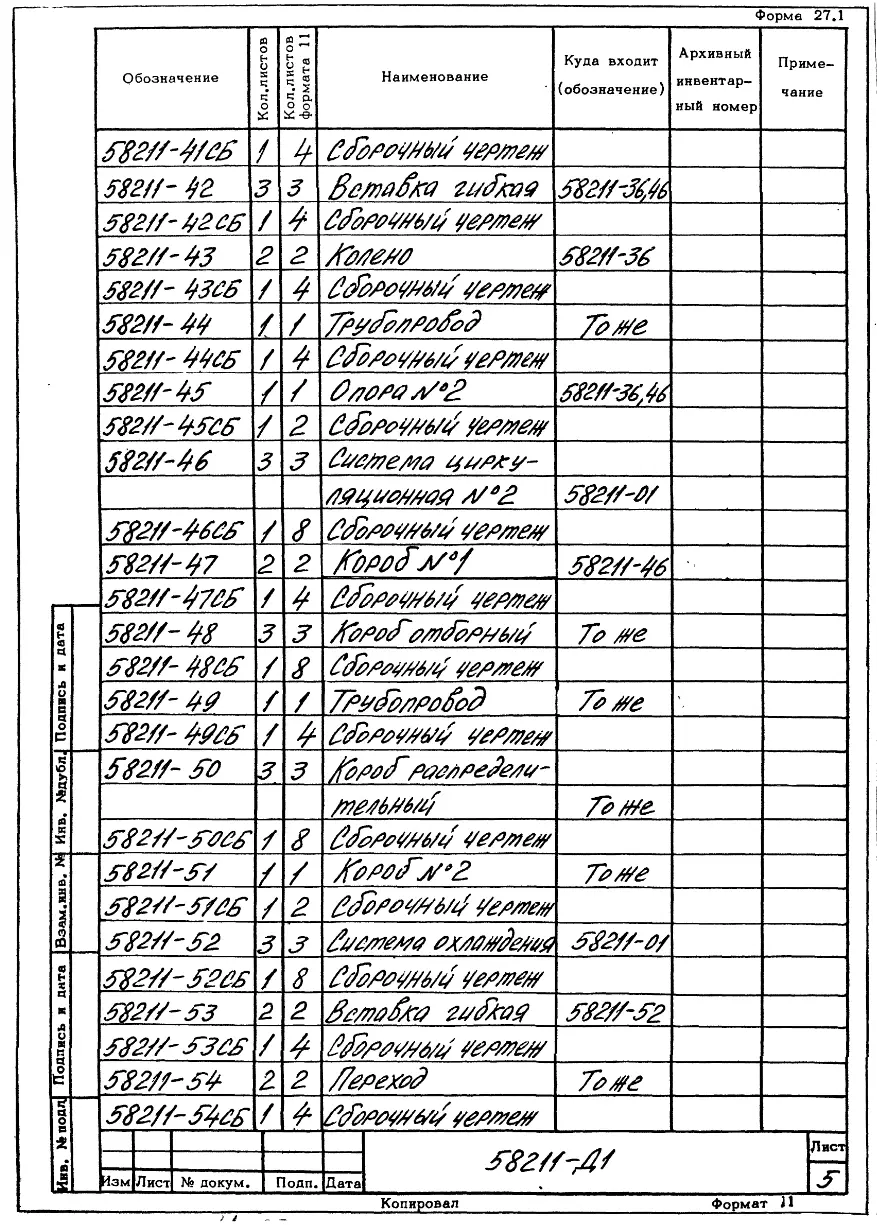 Форма 27.1
Обозначение | Кол.листов | Кол.листов формата 11 | Наименование | Куда входит (обозначение) | Архивный инвентарный номер | Примечание
58211-41СБ 1 4 Сборочный чертеж
58211-42 3 3 Вставка гибкая 58211-36,46
58211-42СБ 1 4 Сборочный чертеж
58211-43 2 2 Колено 58211-36
58211-43СБ 1 4 Сборочный чертеж
58211-44 1 1 Трубопровод То же
58211-44СБ 1 4 Сборочный чертеж
58211-45 1 1 Опора №2 58211-36,46
58211-45СБ 1 2 Сборочный чертеж
58211-46 3 3 Система цирку-
ляционная №2 58211-01
58211-46СБ 1 8 Сборочный чертеж
58211-47 2 2 Короб №1 58211-46
58211-47СБ 1 4 Сборочный чертеж
58211-48 3 3 Короб отборный То же
58211-48СБ 1 8 Сборочный чертеж
58211-49 1 1 Трубопровод То же
58211-49СБ 1 4 Сборочный чертеж
58211-50 3 3 Короб распредели-
тельный То же
58211-50СБ 1 8 Сборочный чертеж
58211-51 1 1 Короб №2 То же
58211-51СБ 1 2 Сборочный чертеж
58211-52 3 3 Система охлаждения 58211-01
58211-52СБ 1 8 Сборочный чертеж
58211-53 2 2 Вставка гибкая 58211-52
58211-53СБ 1 4 Сборочный чертеж
58211-54 2 2 Переход То же
58211-54СБ 1 4 Сборочный чертеж
Подпись и дата
Инв. №дубл.
Взам.инв. №
Подпись и дата
Инв. № подл
Изм Лист № докум. Подп. Дата
58211-Д1
Лист
5
Копировал
Формат 11